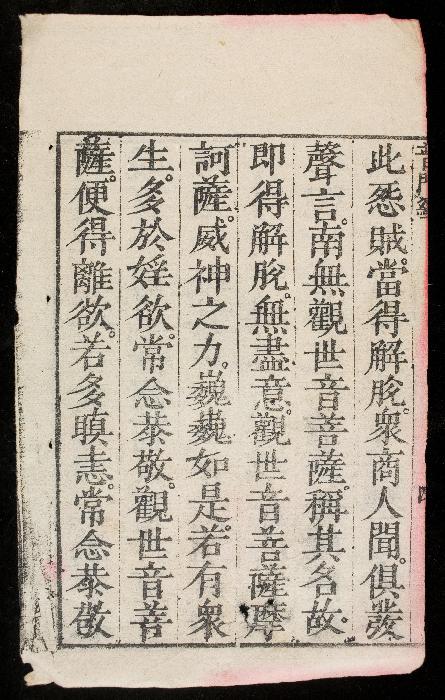 此怨賊。當得解脫。衆商人聞。俱發
聲言。南無觀世音菩薩。稱其名故。
即得解脫。無盡意。觀世音菩薩摩
訶薩。威神之力。巍巍如是。若有衆
生。多於婬欲。常念恭敬。觀世音菩
薩。便得離欲。若多瞋恚。常念恭敬